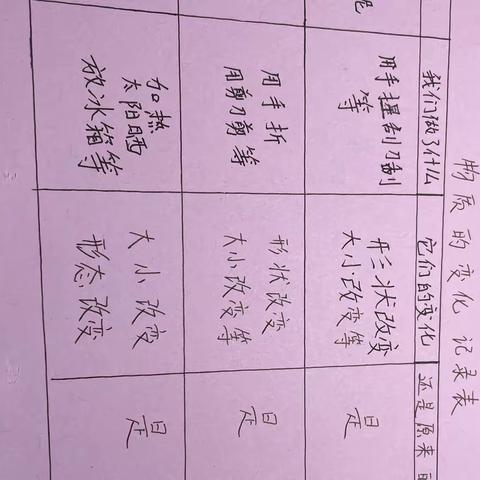 物质的变化 记录表
我们做了什么
它们的变化
还是原来
用手捏
等
形状改变
大小改变等
是
用手折
用剪刀剪等
形状改变
大小改变等
是
加热
太阳晒
放冰箱等
大小改变
形态改变
是